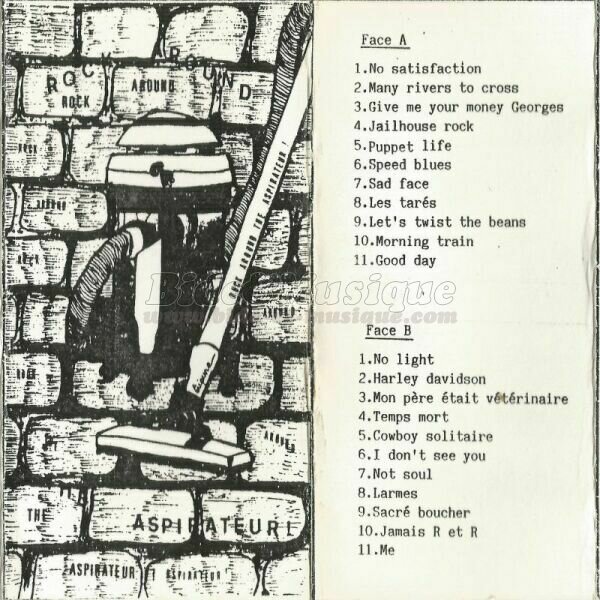 ROCK ROUND
ROCK AROUND
ROCK
AROUND
ROCK AROUND THE ASPIRATEUR !
AROUND
THE
ASPIRATEUR !
ASPIRATEUR ! ASPIRATEUR !
Bide&Musique
Face A
1.No satisfaction
2.Many rivers to cross
3.Give me your money Georges
4.Jailhouse rock
5.Puppet life
6.Speed blues
7.Sad face
8.Les tarés
9.Let's twist the beans
10.Morning train
11.Good day
Face B
1.No light
2.Harley davidson
3.Mon père était vétérinaire
4.Temps mort
5.Cowboy solitaire
6.I don't see you
7.Not soul
8.Larmes
9.Sacré boucher
10.Jamais R et R
11.Me